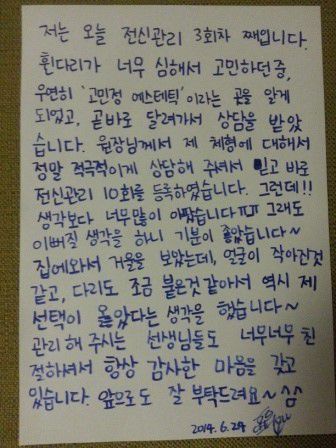 저는 오늘 전신관리 3회차 째입니다.
휜다리가 너무 심해서 고민하던중,
우연히 '고민정 에스테틱' 이라는 곳을 알게
되었고, 곧바로 달려가서 상담을 받았
습니다. 원장님께서 제 체형에 대해서
정말 적극적이게 상담해 주셔서 믿고 바로
전신관리 10회를 등록하였습니다. 그런데!!
생각보다 너무많이 아팠습니다ㅠㅠ 그래도
이뻐질 생각을 하니 기분이 좋았습니다~
집에와서 거울을 보았는데, 얼굴이 작아진것
같고, 다리도 조금 붙은것 같아서 역시 제
선택이 옳았다는 생각을 했습니다~
관리해 주시는 선생님들도 너무너무 친
절하셔서 항상 감사한 마음을 갖고
있습니다. 앞으로도 잘 부탁드려요~ ^^
2014. 6. 24